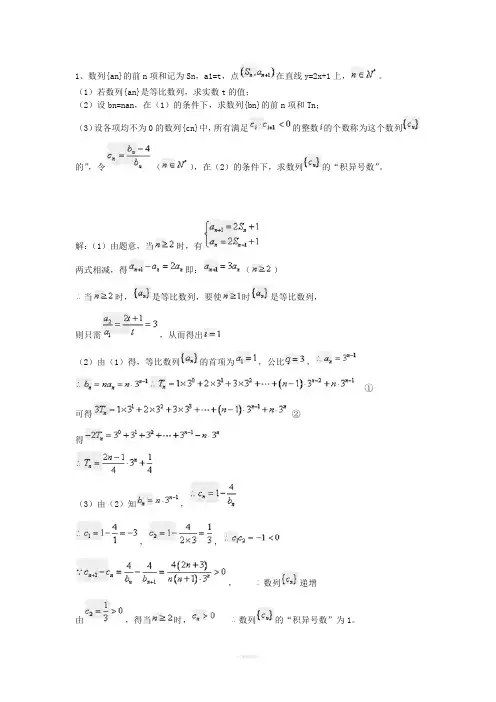 1、数列{an}的前n项和记为Sn，a1=t，点(Sₙ,aₙ₊₁)在直线y=2x+1上，n∈N*。
（1）若数列{an}是等比数列，求实数t的值；
（2）设bn=nan，在（1）的条件下，求数列{bn}的前n项和Tn；
（3）设各项均不为0的数列{cn}中，所有满足cᵢ·cᵢ₊₁<0的整数i的个数称为这个数列{cₙ}
的”，令cₙ=(bₙ-4)/bₙ（n∈N*），在（2）的条件下，求数列{cₙ}的“积异号数”。
解：（1）由题意，当n≥2时，有{aₙ₊₁=2Sₙ+1
aₙ=2Sₙ₋₁+1
两式相减，得aₙ₊₁-aₙ=2aₙ即：aₙ₊₁=3aₙ（n≥2）
∴当n≥2时，{aₙ}是等比数列，要使n≥1时{aₙ}是等比数列，
则只需a₂/a₁=(2t+1)/t=3，从而得出t=1
（2）由（1）得，等比数列{aₙ}的首项为a₁=1，公比q=3，∴aₙ=3ⁿ⁻¹
∴bₙ=naₙ=n·3ⁿ⁻¹∴Tₙ=1×3⁰+2×3¹+3×3²+⋯+(n-1)·3ⁿ⁻²+n·3ⁿ⁻¹ ①
可得3Tₙ=1×3¹+2×3²+3×3³+⋯+(n-1)·3ⁿ⁻¹+n·3ⁿ ②
得-2Tₙ=3⁰+3¹+3²+⋯+3ⁿ⁻¹-n·3ⁿ
∴Tₙ=(2n-1)/4·3ⁿ+1/4
（3）由（2）知bₙ=n·3ⁿ⁻¹，∴cₙ=1-4/bₙ
∴c₁=1-4/1=-3，c₂=1-4/(2×3)=1/3，∴c₁c₂=-1<0
∵cₙ₊₁-cₙ=4/bₙ-4/bₙ₊₁=4(2n+3)/(n(n+1)·3ⁿ)>0，∴数列{cₙ}递增
由c₂=1/3>0，得当n≥2时，cₙ>0 ∴数列{cₙ}的“积异号数”为1。